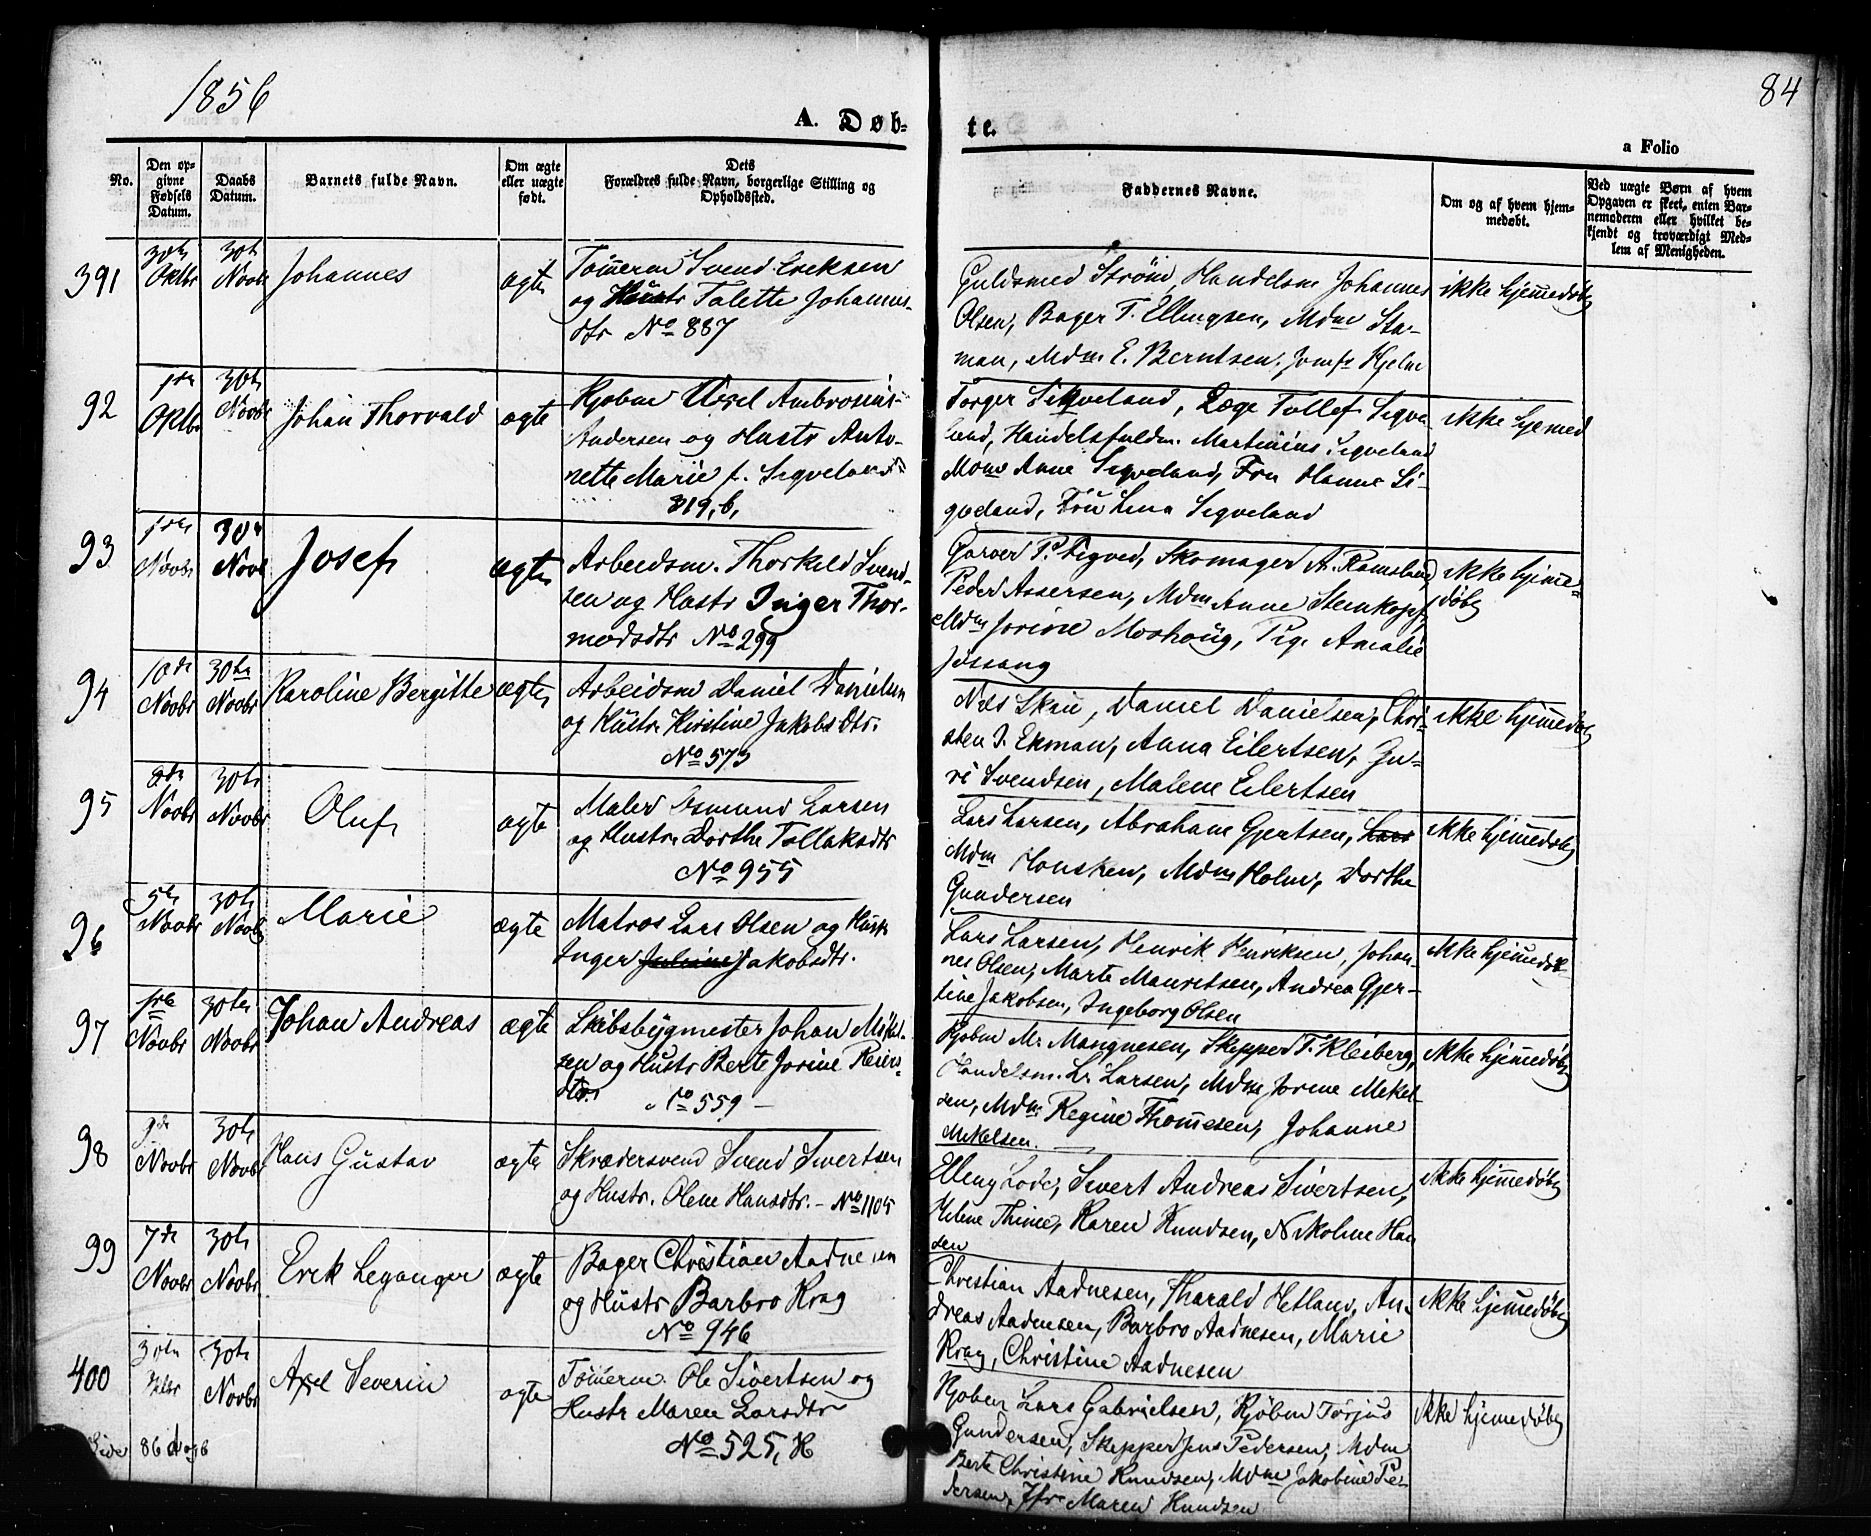 1856
84
A. Døb-
te.
a Folio
No.
Den op-
givne
Fødsels
Datum.
Daabs
Datum.
Barnets fulde Navn.
Om ægte
eller uægte
født.
Dets
Forældres fulde Navn, borgerlige Stilling og
Opholdssted.
Faddernes Navne.
Om og af hvem hjem-
medøbt.
Ved uægte Børn af hvem
Opgaven er skeet, enten Bar-
nemoderen eller hvilket be-
kjendt og troværdigt Med-
lem af Menigheden.
391
Oktbr
30te
Novbr
Johannes
ægte
Tømerm Svend Eriksen
og Hustr Talette Johannes-
dtr No 887
Guldsmed Strøm, Handelsm Johannes
Olsen, Bager T. Ellingsen, Mdm Sta-
man, Mdm E. Berntsen, Jomfr Hjelm
ikke hjemmedøbt
92
Oktbr
30te
Novbr
Johan Thorvald
ægte
Kjøbm Axel Ambrosius
Andersen og Hustr Anto-
nette Marie f. Sigveland
819, b,
Torger Sigveland, Læge Tollef Sigve-
land, Handelsfuldm. Martinius Sigveland
Mdm Anne Sigveland, Fru Hanne Si-
gveland, Frü Lina Sigveland
ikke hjemed
93
Novbr
30te
Novb
Josef
ægte
Arbeidsm. Thorkild Svend-
sen og Hustr Inger Thor-
modsdtr No 299
Garver P. Sigved, Skomager A. Ramsland
Peder Assersen, Mdm Anne Stenkopf,
Mdm Jorine Moshaüg, Pige Amalie
Jøssang
ikke hjeme-
døbt
94
10de
Novbr
30te
Novbr
Karoline Bergitte
ægte
Arbeidsm Daniel Danielsen
og Hustr. Kirstine Jakobsdtr.
No 573
Nils Skau, Daniel Danielsen, Chri-
sten J. Ekman, Anna Eilertsen, Gu-
ri Svendsen, Malene Eilertsen
ikke hjemmedøbt
95
Novbr
30te
Novbr
Oluf
ægte
Maler Osmund Larsen
og Hustr. Dorthe Tollaksdtr
No 955
Lars Larsen, Abraham Gjertsen, Lars
Mdm Housken, Mdm Holm, Dorthe
Gundersen
ikke hjemmedøbt
96
5te
Novbr
30te
Novb
Marie
ægte
Matros Lars Olsen og Hustr
Inger Juliane Jakobsdtr.
Lars Larsen, Henrik Henriksen, Johan-
nes Olsen, Marte Mauritsen, Andrea Gjer-
tine Jakobsen, Ingeborg Olsen
ikke hjemmedøbt
97
Novbr
30te
Novbr
Johan Andreas
ægte
Skibsbygmester Johan Mikel-
sen og Hustr Berte Jorine Reiers-
dtr. No 559 –
Kjøbm M. Mangnesen, Skipper T. Kleiberg,
Handelsm. Lr Larsen, Mdm Jorine Mikel-
sen, Mdm Regine Thomesen, Johanne
Mikelsen.
ikke hjemmedøbt
98
9de
Novbr
30te
Novbr
Hans Gustav
ægte
Skrædersvend Svend Sivertsen
og Hustr. Olene Hansdtr. – No 1105
Elling Lode, Sivert Andreas Sivertsen,
Helene Thime, Karen Knudsen, Nikoline Han
sen
ikke hjemmedøbt
99
7de
Novbr
30te
Novbr
Erik Leganger
ægte
Bager Christian Aadnesen
og Hustr Barbro Krag
No 946
Christian Aadnesen, Tharald Hetland, An-
dreas Aadnesen, Barbro Aadnesen, Marie
Krag, Christine Aadnesen
ikke hjemmedøbt
400
30te
Novbr
Axel Severin
ægte
Tømerm. Ole Sivertsen og
Hustr Maren Larsdtr
No 525, H
Kjøbm Lars Gabrielsen, Kjøbm Torjus
Gundersen, Skipper Jens Pedersen, Mdm
Berte Christine Knudsen, Mdm Jakobine Pe-
dersen, Jfr Maren Knudsen
ikke hjemmedøbt
Side 86